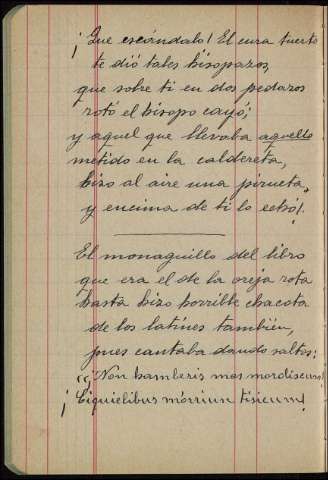 ¡Que escándalo! El cura tuerto
te dió tales hisopazos,
que sobre ti en dos pedazos
rotó el hisopo cayó;
y aquel que llevaba aquello
metido en la caldereta,
hizo al aire una pirueta,
y encima de ti lo echó!.
El monaguillo del libro
que era el de la oreja rota
hasta hizo horrible chacota
de los latines tambien,
pues cantaba dando saltos:
"¡Non hamberis mas mordiscum!
¡